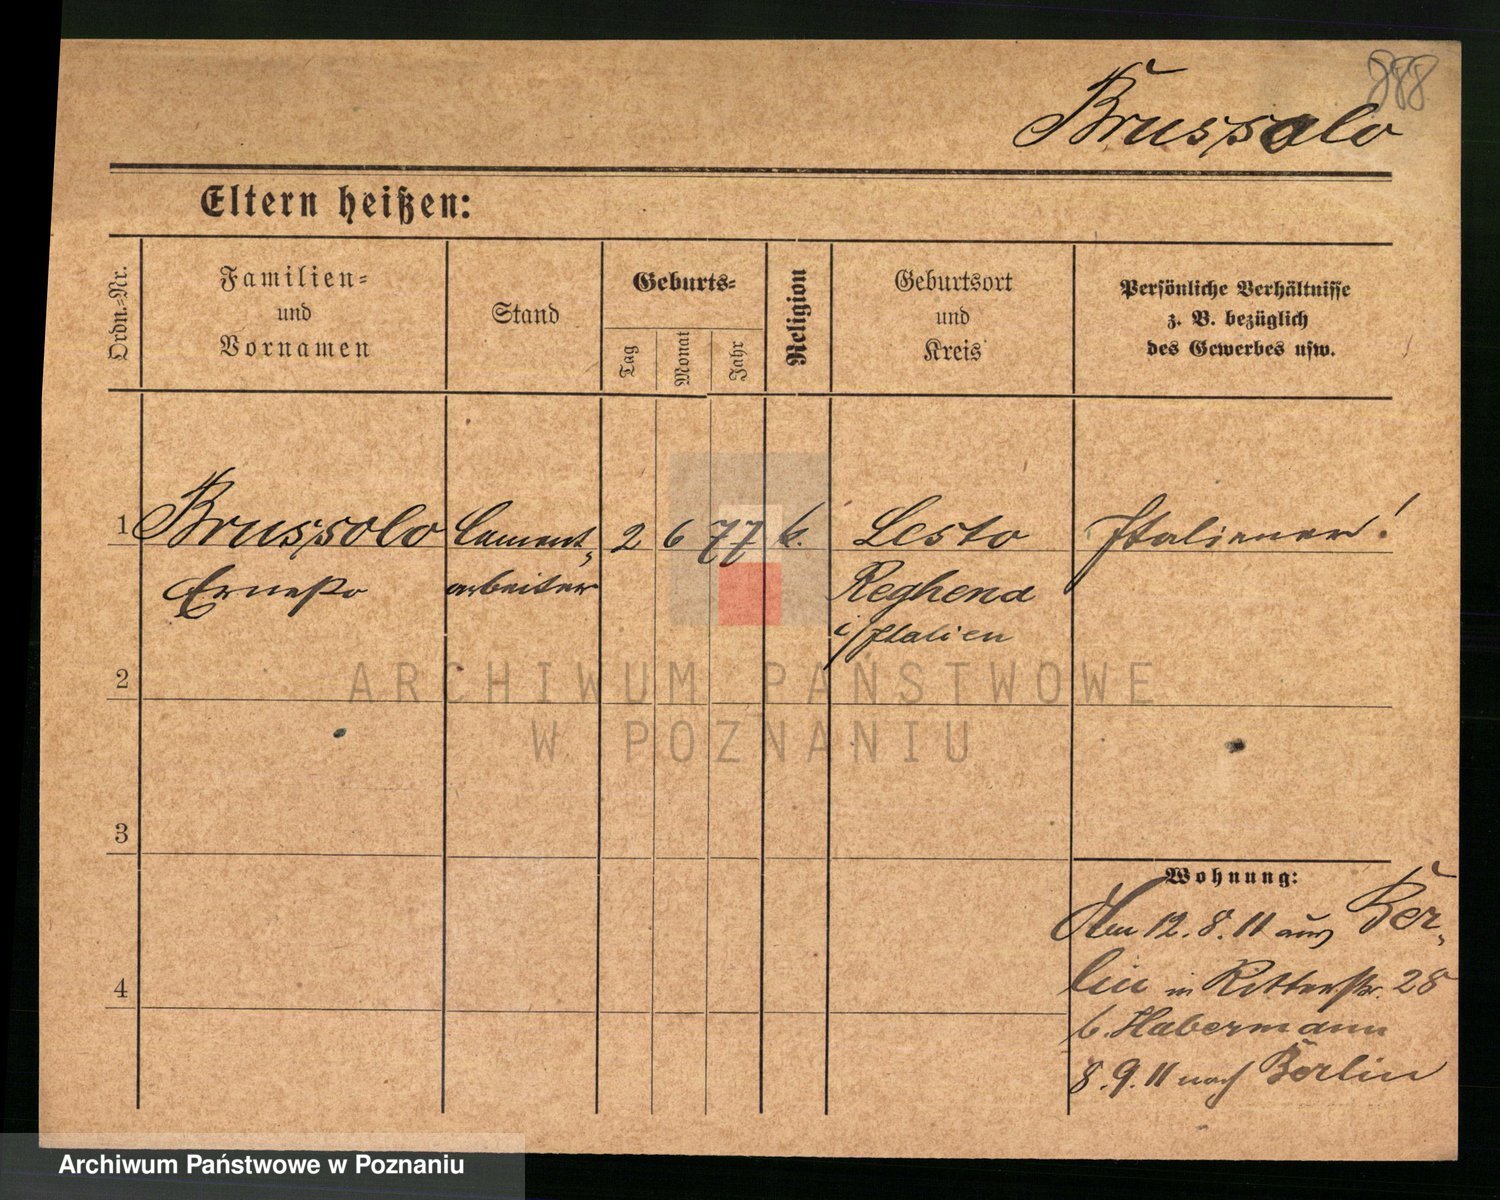 888
Brussolo
Eltern heißen:
Ordn.-Nr.
Familien-
und
Vornamen
Stand
Geburts-
Tag
Monat
Jahr
Religion
Geburtsort
und
Kreis
Persönliche Verhältnisse
z. B. bezüglich
des Gewerbes usw.
1 Brussolo Cement- 2 6 77 k. Sesto Italiener!
Ernesto arbeiter Reghena
i/Italien
2
3
4
Wohnung:
Am 12.8.11 aus Ber-
lin in Ritterstr. 28
b. Habermann
8.9.11 nach Berlin
ARCHIWUM PAŃSTWOWE
W POZNANIU
Archiwum Państwowe w Poznaniu